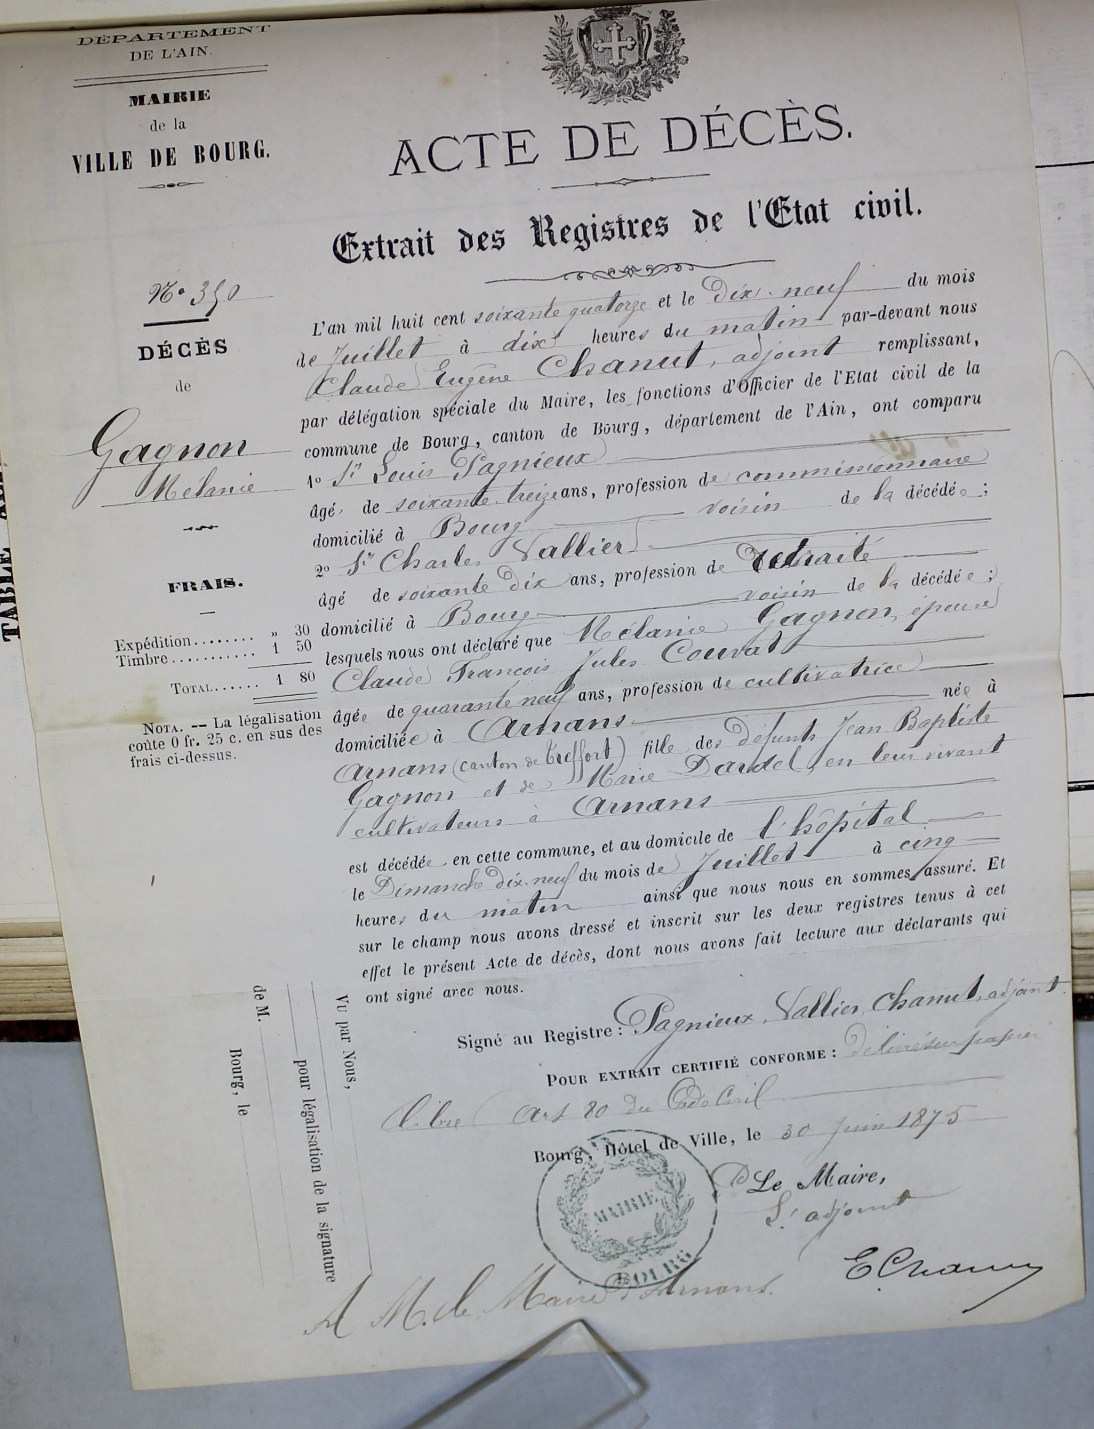 DÉPARTEMENT
DE L'AIN.
MAIRIE
de la
VILLE DE BOURG.
ACTE DE DÉCÈS.
Extrait des Registres de l'Etat civil.
N° 350
DÉCÈS
de
Gagnon
Mélanie
FRAIS.
Expédition........ » 30
Timbre........... 1 50
TOTAL...... 1 80
NOTA. -- La légalisation
coûte 0 fr. 25 c. en sus des
frais ci-dessus.
L'an mil huit cent soixante quatorze et le Dix-neuf du mois
de Juillet à dix heures du matin par-devant nous
Claude Eugène Chanut, adjoint remplissant,
par délégation spéciale du Maire, les fonctions d'Officier de l'Etat civil de la
commune de Bourg, canton de Bourg, département de l'Ain, ont comparu
1° Sr Louis Pagnieux
âgé de soixante-treize ans, profession de commissionnaire
domicilié à Bourg voisin de la décédée;
2° Sr Charles Vallier
âgé de soixante dix ans, profession de retraité
domicilié à Bourg voisin de la décédée;
lesquels nous ont déclaré que Mélanie Gagnon, épouse
Claude François Jules Couvat
âgée de quarante neuf ans, profession de cultivatrice
domiciliée à Arnans née à
Arnans (canton de Treffort) fille des défunts Jean Baptiste
Gagnon et de Marie Dardel, en leur vivant
cultivateurs à Arnans
est décédée en cette commune, et au domicile de l'hôpital
le Dimanche dix-neuf du mois de Juillet à cinq
heures du matin ainsi que nous nous en sommes assuré. Et
sur le champ nous avons dressé et inscrit sur les deux registres tenus à cet
effet le présent Acte de décès, dont nous avons fait lecture aux déclarants qui
ont signé avec nous.
Signé au Registre: Pagnieux, Vallier, Chanut, adjoint.
POUR EXTRAIT CERTIFIÉ CONFORME: Délivré sur papier
libre (Art 80 du Code Civil
Bourg, Hôtel de Ville, le 30 Juin 1875
Le Maire,
L' adjoint
E Chanut
MAIRIE
BOURG
A M. le Maire d'Arnans.
Vu par Nous,
pour légalisation de la signature
de M.
Bourg, le